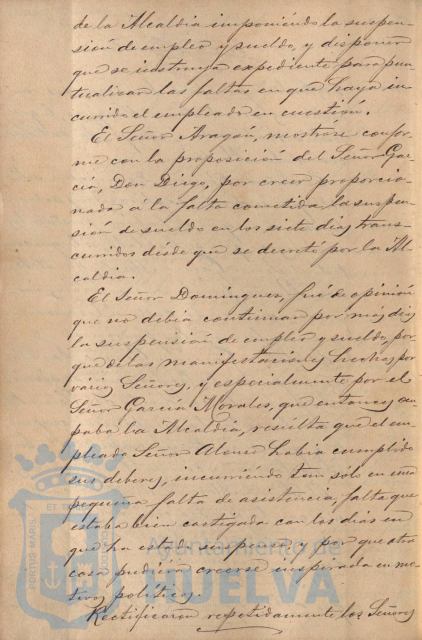 de la Alcaldia imponiendo la suspen-
sión de empleo y sueldo, y disponer
que se instruya expediente para pun-
tualizar las faltas en que haya in-
currido el empleado en cuestión.
El Señor Aragón, mostrose confor-
me con la proposición del Señor Gar-
cía, Don Diego, por creer proporcio-
nada á la falta cometida la suspen-
sión de sueldo en los siete dias trans-
curridos désde que se decretó por la Al-
caldia.
El Señor Dominguez, fué de opinión
que no debia continuar por más dias
la suspensión de empleo y sueldo, por
que de las manifestaciones hechas por
vários Señores, y especialmente por el
Señor Garcia Morales, que entonces ocu-
paba la Alcaldia, resulta que el em-
pleado Señor Alonso habia cumplido
sus deberes, incurriendo tan sólo en una
pequeña falta de asistencia, falta que
estaba bien castigada con los dias en
que ha estado suspenso, y por que otra
cosa pudiera creerse inspirada en mo-
tivos políticos.
Rectificaron repetidamente los Señores
PORTUS MARIS
ET TERRÆ CUSTODIA
Ayuntamiento de
HUELVA